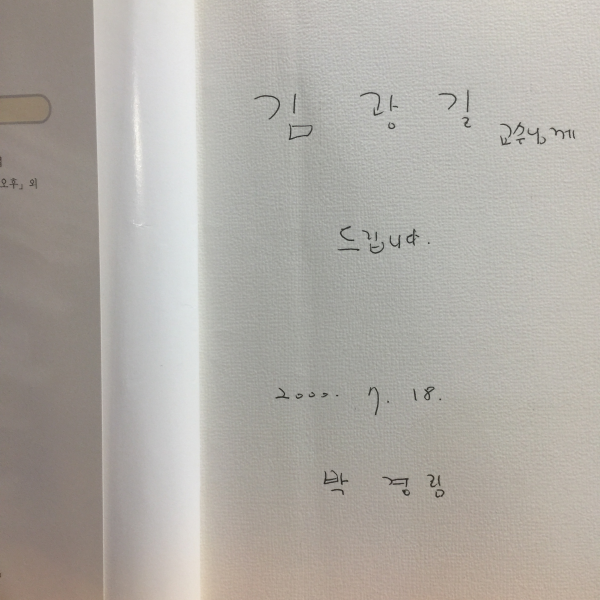 김 광 길 교수님께
드립니다.
2000. 7. 18.
박 경 림
오후」 외